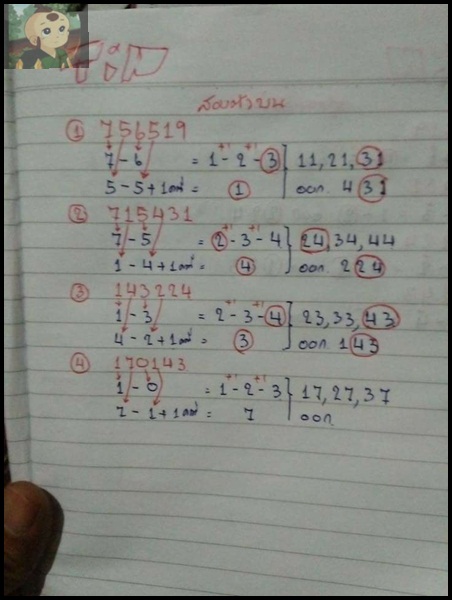 TiP
สองตัวบน
① 756519
7 - 6 = 1 - 2 - 3 } 11, 21, 31
5 - 5 + 1เสมอ = 1 ออก. 431
② 715431
7 - 5 = 2 - 3 - 4 } 24, 34, 44
1 - 4 + 1เสมอ = 4 ออก. 224
③ 143224
1 - 3 = 2 - 3 - 4 } 23, 33, 43
4 - 2 + 1เสมอ = 3 ออก. 143
④ 170143
1 - 0 = 1 - 2 - 3 } 17, 27, 37
7 - 1 + 1เสมอ = 7 ออก.